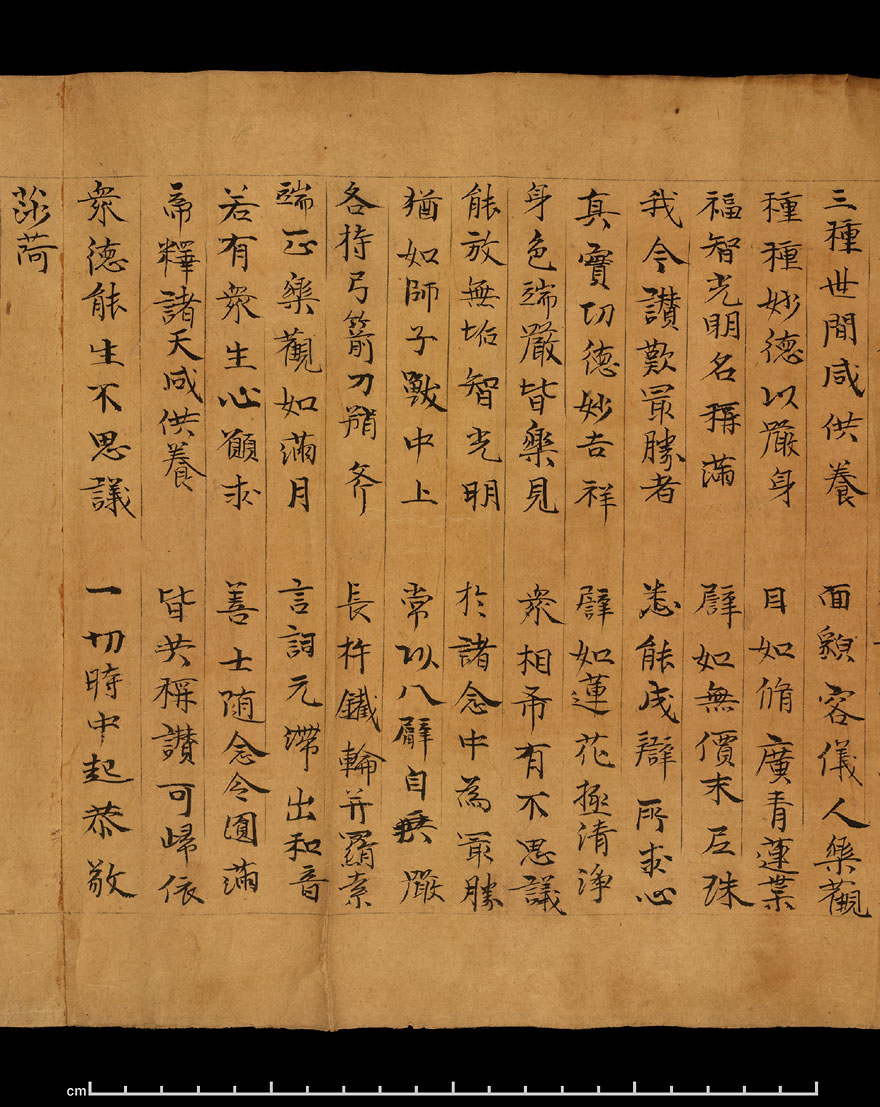 三種世間咸供養 面貌容儀人樂觀
種種妙德以嚴身 目如脩廣青蓮葉
福智光明名稱滿 譬如無價末尼珠
我今讚歎最勝者 悉能成辦所求心
真實功德妙吉祥 譬如蓮花極清淨
身色端嚴皆樂見 衆相希有不思議
能放無垢智光明 於諸念中為最勝
猶如師子獸中上 常以八臂自莊嚴
各持弓箭刀矟斧 長杵鐵輪并羂索
端正樂觀如滿月 言詞无滯出和音
若有衆生心願求 善士隨念令圓滿
帝釋諸天咸供養 皆共稱讚可歸依
衆德能生不思議 一切時中起恭敬
莎荷
cm